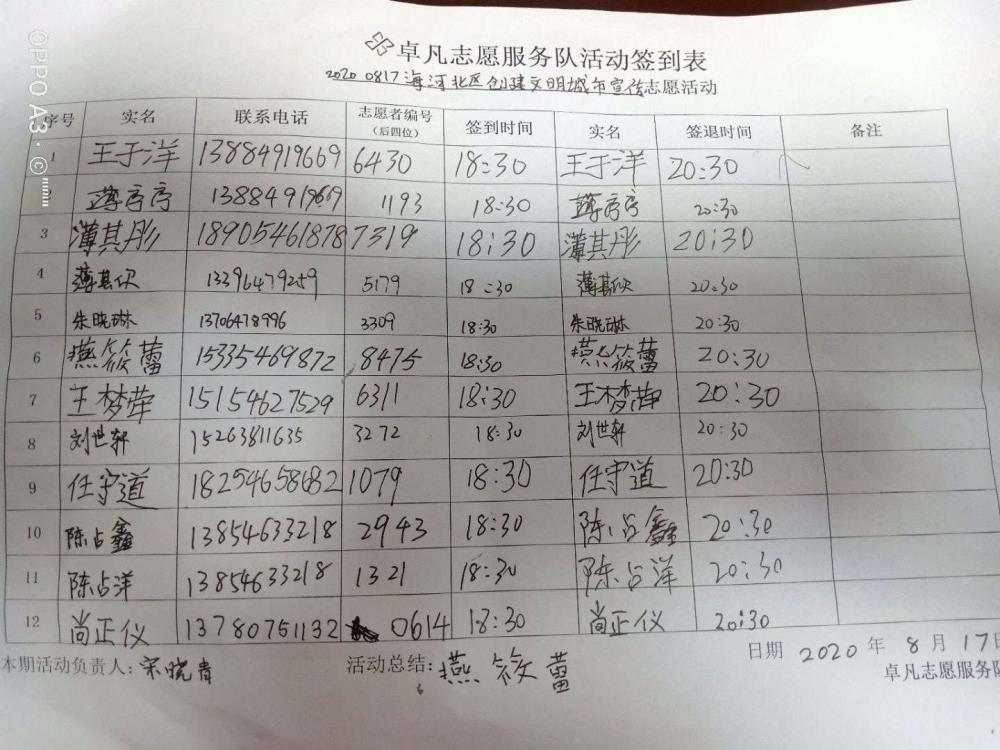 卓凡志愿服务队活动签到表
2020 0817 海河北区创建文明城市宣传志愿活动
序号 实名 联系电话 志愿者编号(后四位) 签到时间 实名 签退时间 备注
1 王于洋 13884919669 6430 18:30 王于洋 20:30
薄序序 13884919669 1193 18:30 薄序序 20:30
3 薄其彤 18905461878 7319 18:30 薄其彤 20:30
4 薄其欣 13396479259 5179 18:30 薄其欣 20:30
5 朱晓琳 13706478996 3309 18:30 朱晓琳 20:30
6 燕筱蕾 15335469872 8475 18:30 燕筱蕾 20:30
7 王梦荦 15154627529 6311 18:30 王梦荦 20:30
8 刘世轩 15263811635 3272 18:30 刘世轩 20:30
9 任守道 18254658682 1079 18:30 任守道 20:30
10 陈占鑫 13854633218 2943 18:30 陈占鑫 20:30
11 陈占洋 13854633218 1321 18:30 陈占洋 20:30
12 尚正仪 13780751132 0614 18:30 尚正仪 20:30
日期 2020 年 8 月 17日
本期活动负责人: 宋晓青 活动总结: 燕筱蕾
卓凡志愿服务队
OPPO A3 · ©